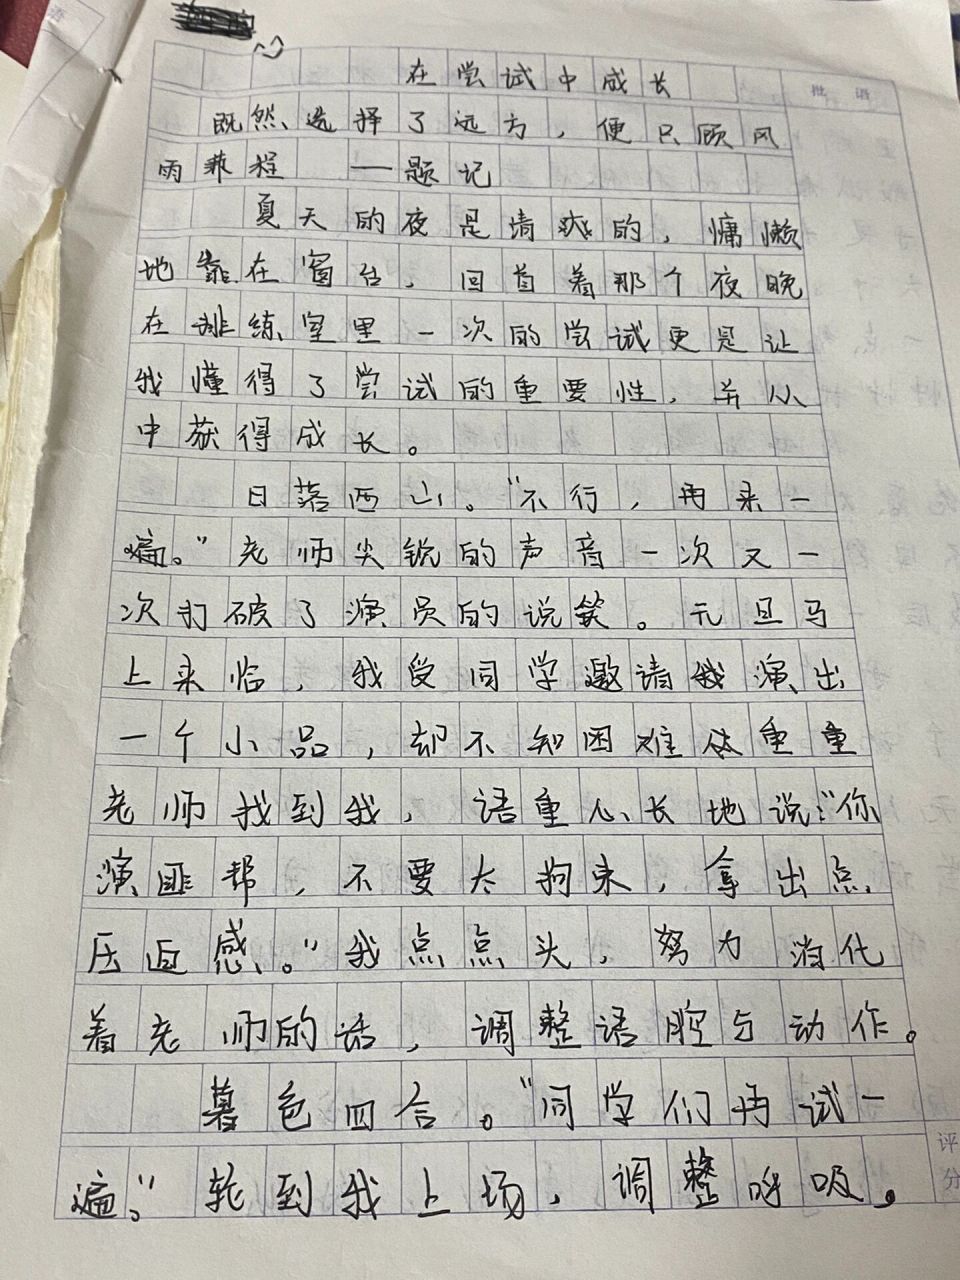 在尝试中成长
批语
既然选择了远方，便只顾风
雨兼程 ——题记
夏天的夜是清爽的，慵懒
地靠在窗台，回首着那个夜晚
在排练室里一次的尝试更是让
我懂得了尝试的重要性，并从
中获得成长。
日落西山。“不行，再来一
遍。”老师尖锐的声音一次又一
次打破了演员的说笑。元旦马
上来临，我受同学邀请我演出
一个小品，却不知困难重重
老师找到我，语重心长地说：“你
演匪帮，不要太拘束，拿出点
压迫感。”我点点头，努力消化
着老师的话，调整语腔与动作。
暮色四合。“同学们再试一
遍。”轮到我上场，调整呼吸。
评分